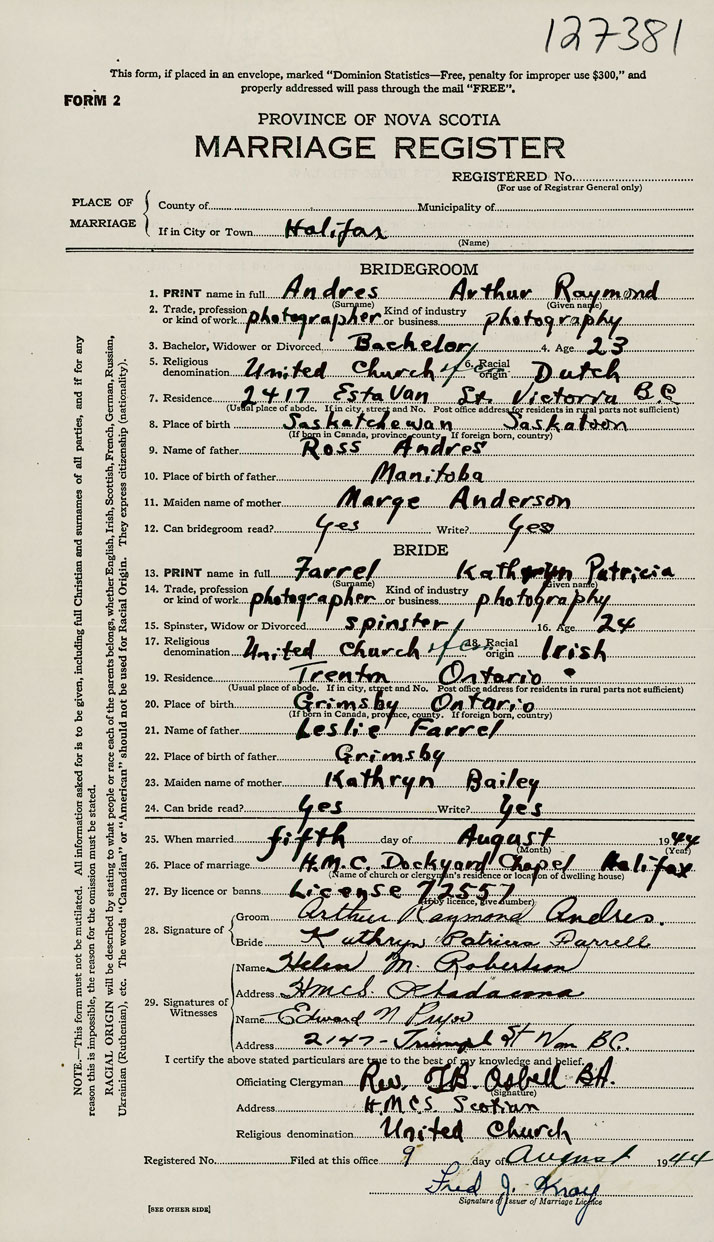 127381
This form, if placed in an envelope, marked "Dominion Statistics—Free, penalty for improper use $300," and
properly addressed will pass through the mail "FREE".
FORM 2
PROVINCE OF NOVA SCOTIA
MARRIAGE REGISTER
REGISTERED No.
(For use of Registrar General only)
PLACE OF MARRIAGE
County of Municipality of
If in City or Town Halifax
(Name)
BRIDEGROOM
1. PRINT name in full Andres Arthur Raymond
(Surname) (Given name)
2. Trade, profession or kind of work photographer Kind of industry or business photography
3. Bachelor, Widower or Divorced Bachelor 4. Age 23
5. Religious denomination United Church of Can 6. Racial origin Dutch
7. Residence 2417 EstaVan St. Victoria B.C
(Usual place of abode. If in city, street and No. Post office address for residents in rural parts not sufficient)
8. Place of birth Saskatchewan Saskatoon
(If born in Canada, province, county. If foreign born, country)
9. Name of father Ross Andres
10. Place of birth of father Manitoba
11. Maiden name of mother Marge Anderson
12. Can bridegroom read? Yes Write? Yes
BRIDE
13. PRINT name in full Farrel Kathryn Patricia
(Surname) (Given name)
14. Trade, profession or kind of work photographer Kind of industry or business photography
15. Spinster, Widow or Divorced spinster 16. Age 24
17. Religious denomination United Church of Can 18. Racial origin Irish
19. Residence Trenton Ontario
(Usual place of abode. If in city, street and No. Post office address for residents in rural parts not sufficient)
20. Place of birth Grimsby Ontario
(If born in Canada, province, county. If foreign born, country)
21. Name of father Leslie Farrel
22. Place of birth of father Grimsby
23. Maiden name of mother Kathryn Bailey
24. Can bride read? Yes Write? Yes
25. When married fifth day of August 1944
(Month) (Year)
26. Place of marriage H.M.C. Dockyard Chapel Halifax
(Name of church or clergyman's residence or location of dwelling house)
27. By licence or banns License 72557
(If by licence, give number)
28. Signature of
Groom Arthur Raymond Andres.
Bride Kathryn Patricia Farrell
29. Signatures of Witnesses
Name Helen M. Robertson
Address HMCS Stadacona
Name Edward N Pryor
Address 2147- Triumph St Van BC.
I certify the above stated particulars are true to the best of my knowledge and belief.
Officiating Clergyman Rev. BA.
(Signature)
Address H.M.C.S. Scotian
Religious denomination United Church
Registered No. Filed at this office 9 day of August 1944
Fred J.
Signature of Issuer of Marriage Licence
[SEE OTHER SIDE]
NOTE.—This form must not be mutilated. All information asked for is to be given, including full Christian and surnames of all parties, and if for any
reason this is impossible, the reason for the omission must be stated.
RACIAL ORIGIN will be described by stating to what people or race each of the parents belongs, whether English, Irish, Scottish, French, German, Russian,
Ukrainian (Ruthenian), etc. The words "Canadian" or "American" should not be used for Racial Origin. They express citizenship (nationality).